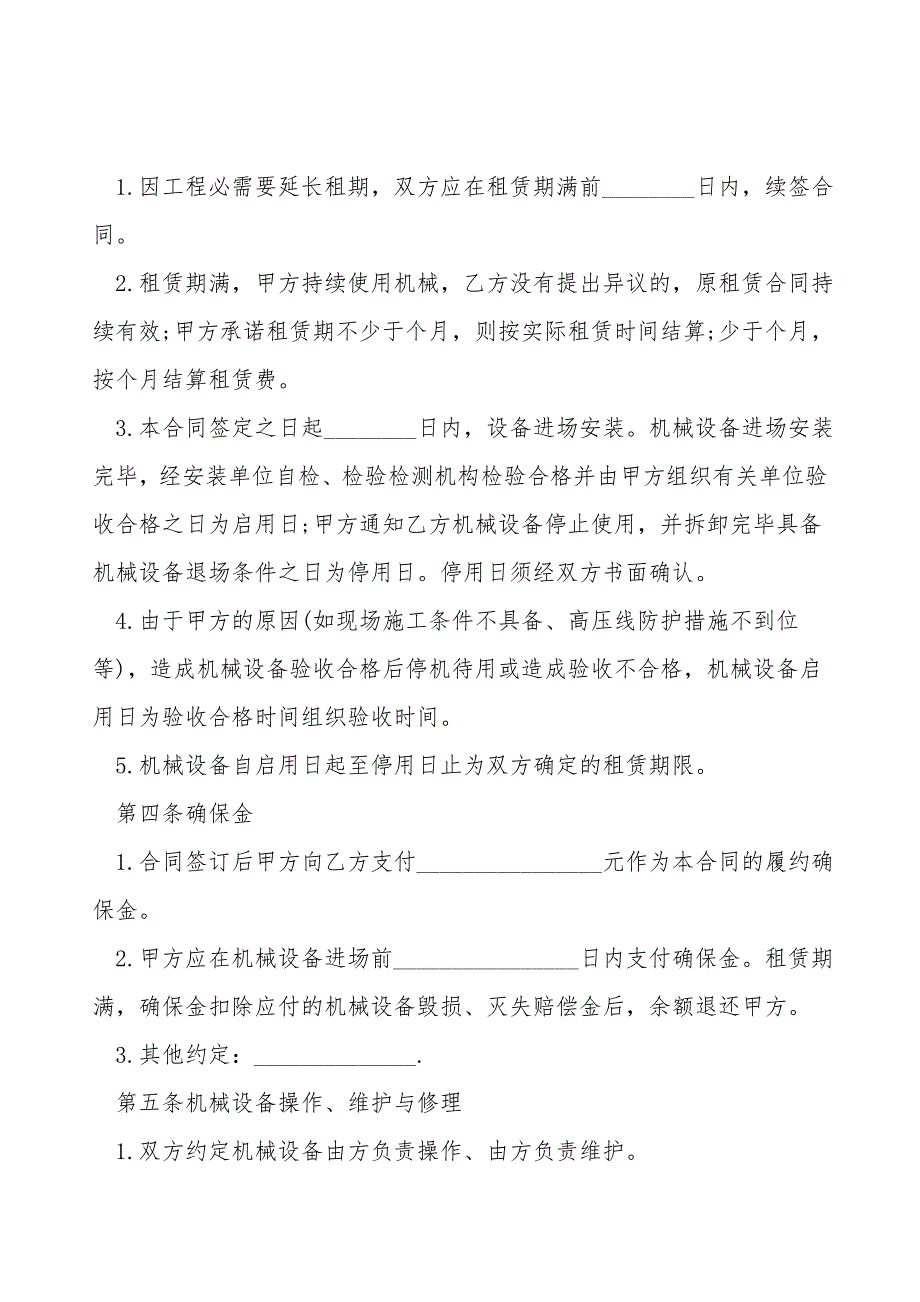 1.因工程必需要延长租期，双方应在租赁期满前________日内，续签合
同。
2.租赁期满，甲方持续使用机械，乙方没有提出异议的，原租赁合同持
续有效;甲方承诺租赁期不少于个月，则按实际租赁时间结算;少于个月，
按个月结算租赁费。
3.本合同签定之日起________日内，设备进场安装。机械设备进场安装
完毕，经安装单位自检、检验检测机构检验合格并由甲方组织有关单位验
收合格之日为启用日;甲方通知乙方机械设备停止使用，并拆卸完毕具备
机械设备退场条件之日为停用日。停用日须经双方书面确认。
4.由于甲方的原因(如现场施工条件不具备、高压线防护措施不到位
等)，造成机械设备验收合格后停机待用或造成验收不合格，机械设备启
用日为验收合格时间组织验收时间。
5.机械设备自启用日起至停用日止为双方确定的租赁期限。
第四条确保金
1.合同签订后甲方向乙方支付________________元作为本合同的履约确
保金。
2.甲方应在机械设备进场前________________日内支付确保金。租赁期
满，确保金扣除应付的机械设备毁损、灭失赔偿金后，余额退还甲方。
3.其他约定：______________.
第五条机械设备操作、维护与修理
1.双方约定机械设备由方负责操作、由方负责维护。